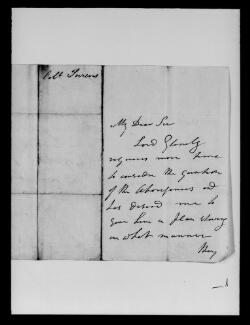 Col Torrens
My Dear Sir
Lord Glenelg
requires more time
to consider the question
of the Aborigines and
has desired me to
give him a Plan
in what manner
they